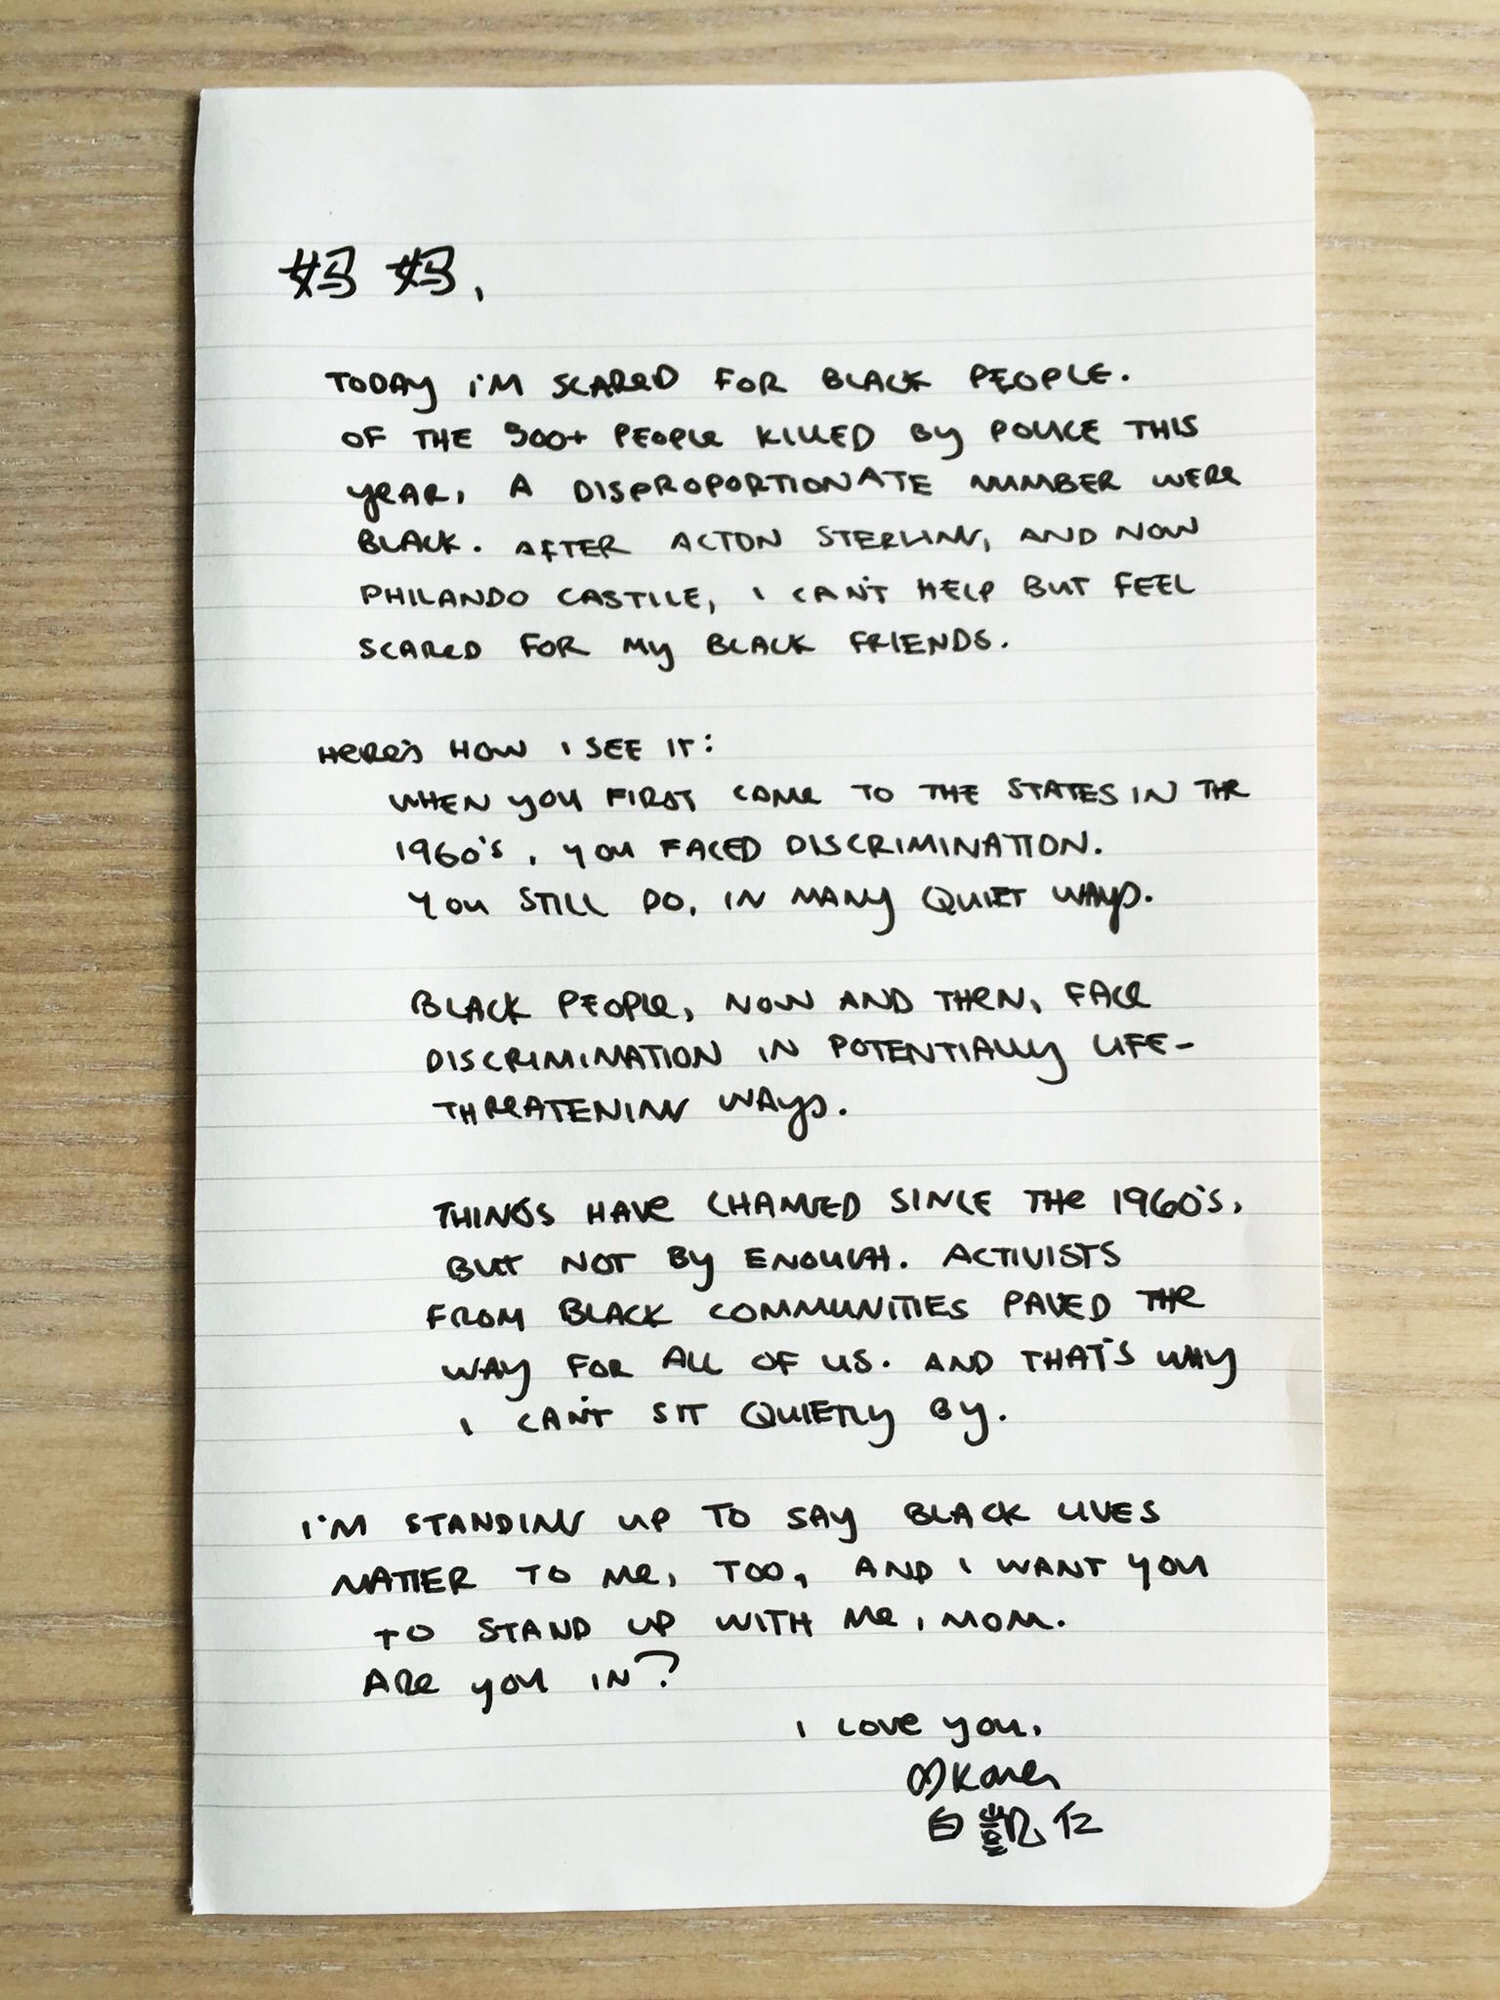 妈 妈,
TODAY I'M SCARED FOR BLACK PEOPLE.
OF THE 500+ PEOPLE KILLED BY POLICE THIS
YEAR, A DISPROPORTIONATE NUMBER WERE
BLACK. AFTER ACTON STERLING, AND NOW
PHILANDO CASTILE, I CAN'T HELP BUT FEEL
SCARED FOR MY BLACK FRIENDS.
HERE'S HOW I SEE IT:
WHEN YOU FIRST CAME TO THE STATES IN THE
1960'S, YOU FACED DISCRIMINATION.
YOU STILL DO, IN MANY QUIET WAYS.
BLACK PEOPLE, NOW AND THEN, FACE
DISCRIMINATION IN POTENTIALLY LIFE-
THREATENING WAYS.
THINGS HAVE CHANGED SINCE THE 1960'S,
BUT NOT BY ENOUGH. ACTIVISTS
FROM BLACK COMMUNITIES PAVED THE
WAY FOR ALL OF US. AND THAT'S WHY
I CAN'T SIT QUIETLY BY.
I'M STANDING UP TO SAY BLACK LIVES
MATTER TO ME, TOO, AND I WANT YOU
TO STAND UP WITH ME, MOM.
ARE YOU IN?
I LOVE YOU,
Karen
白 凱 仁